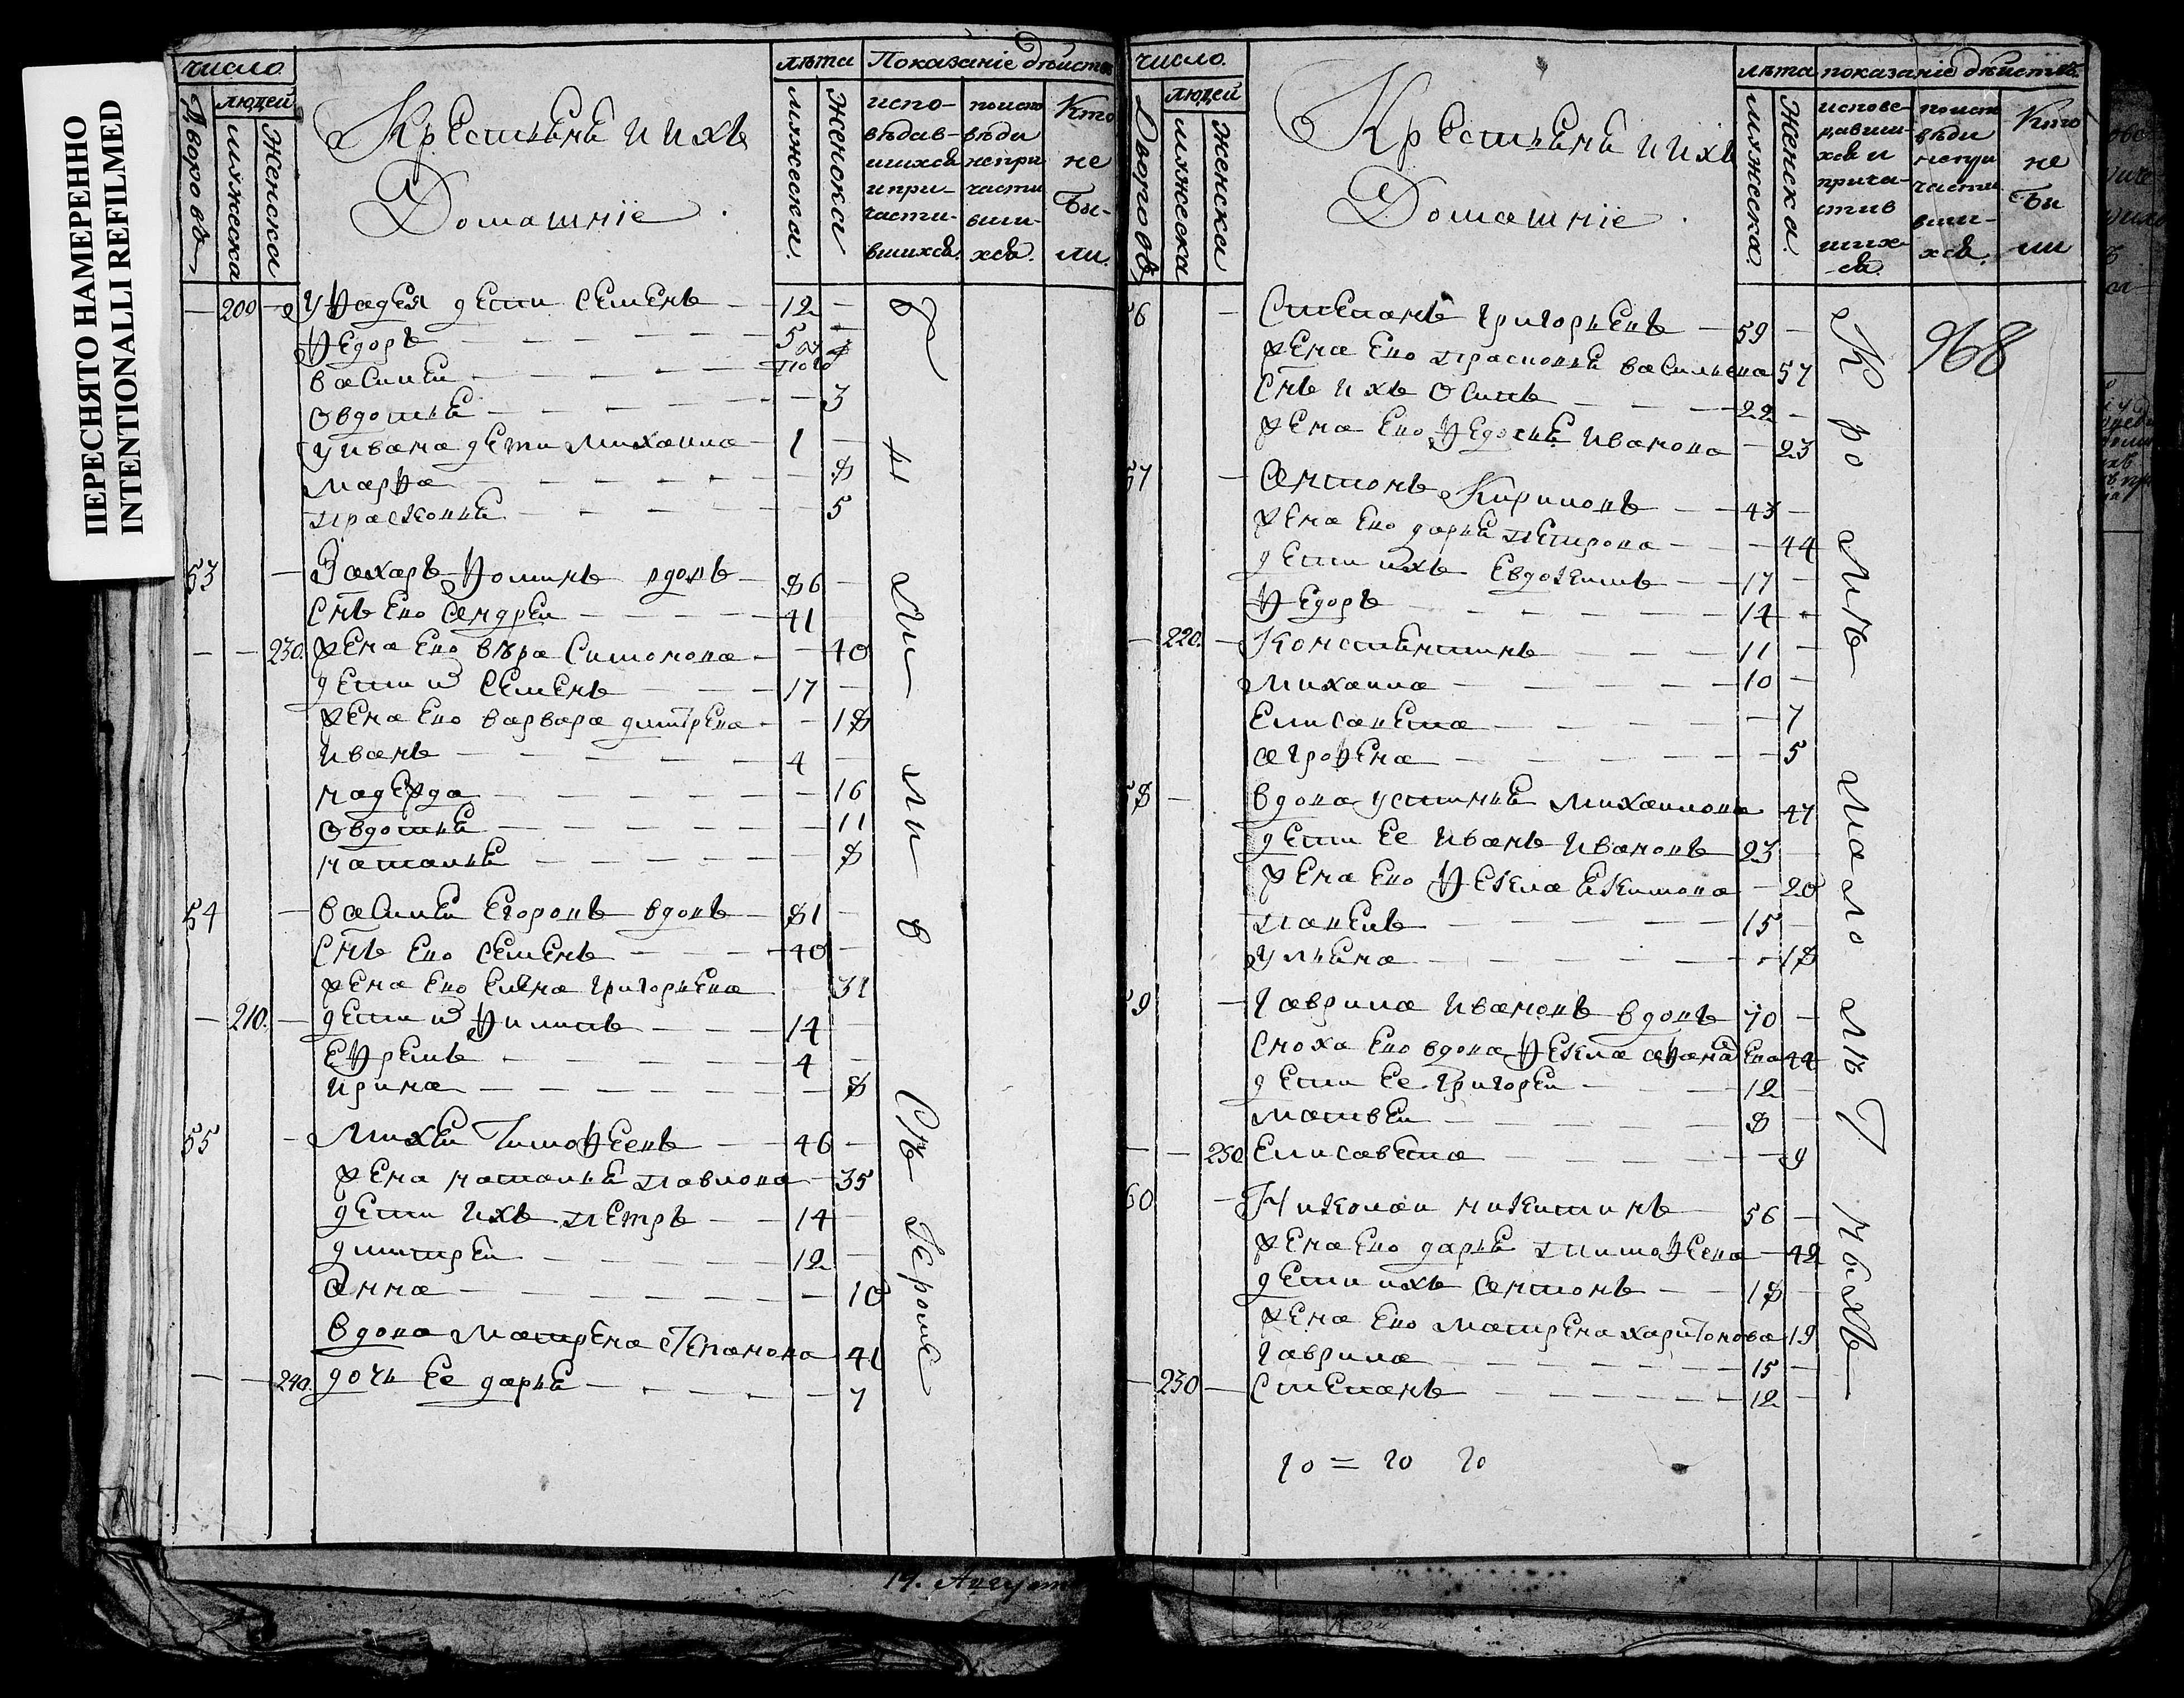 ПЕРЕСНЯТО НАМЕРЕННО
INTENTIONALLI REFILMED
число
людей
Дворовъ
мужеска
Женска
Крестьяня и ихъ
Домашніе
лѣта
мужеска
Женска
Показаніе дѣиств
испо-
вѣдав-
шихся
и при-
части-
вшихся
поиспо
вѣди
непри
части
вши-
хся
Кто
не
Бы-
ли
200 у Фадея дети Семенъ 12
Федоръ 5
Василей
Овдотья 3
у ивана дети михаила 1
марфа 8
прасковья 5
53 Захаръ Фоминъ вдовъ 86
Снъ Ево Андреи 41
230 жена Ево Вѣра Симонова 40
дети их Семенъ 17
жена Ево варвара дмитрева 18
иванъ 4
надежда 16
Овдотья 11
наталья 8
54 Василеи Егоровъ вдовъ 81
Снъ Ево Семенъ 40
жена Ево Елена григорьева 31
210 дети их Филипъ 14
Ефремъ 4
ирина 8
55 Михеи Тимофеевъ 46
жена наталья павлова 35
дети ихъ петръ 14
дмитреи 12
анна 10
вдова матрена Степанова 41
240 дочь Ее дарья 7
Были в Съ Кроме
14. Августа
число
людей
Дворовъ
мужеска
женска
Крестьяня и ихъ
Домашніе
лѣта
мужеска
Женска
показаніе дѣиств
испове-
давши-
хся и
прича-
стив
шихся
поиспо
вѣди
непри
части
вши-
хся
Кто
не
бы
ли
968
56 Степанъ григорьевъ 59
жена Ево прасковья Васильева 57
Снъ ихъ Осипъ 22
жена Ево Федосья иванова 23
57 Антонъ Кириловъ 43
жена Ево дарья петрова 44
дети ихъ Евдокимъ 17
Федоръ 14
220 Константинъ 11
михаила 10
Елисавета 7
агрофена 5
58 вдова устинья михаилова 47
дети Ее иванъ ивановъ 23
жена Ево Фекла Екимова 20
павелъ 15
ульяна 18
59 гаврила ивановъ вдовъ 70
Сноха Ево вдова Фекла афанасева 44
дети Ее григореи 12
матвеи 8
250 Елисавета 9
60 Николаи никитинъ 56
жена Ево дарья тимофеева 42
дети ихъ антонъ 18
жена Ево матрена харитонова 19
гаврила 15
230 Степанъ 12
Кроме малолѣтныхъ
20 = 20 20